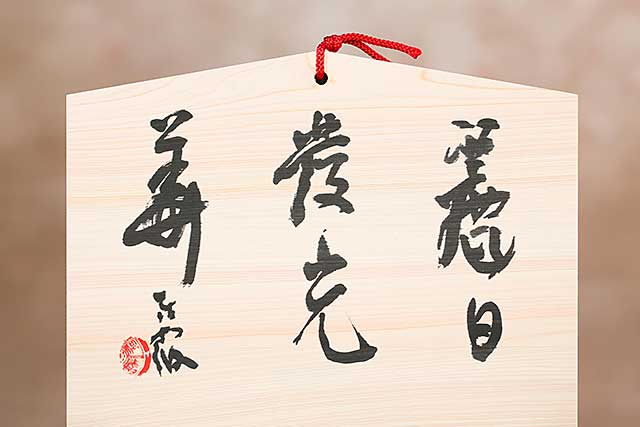 麗日
發光
華